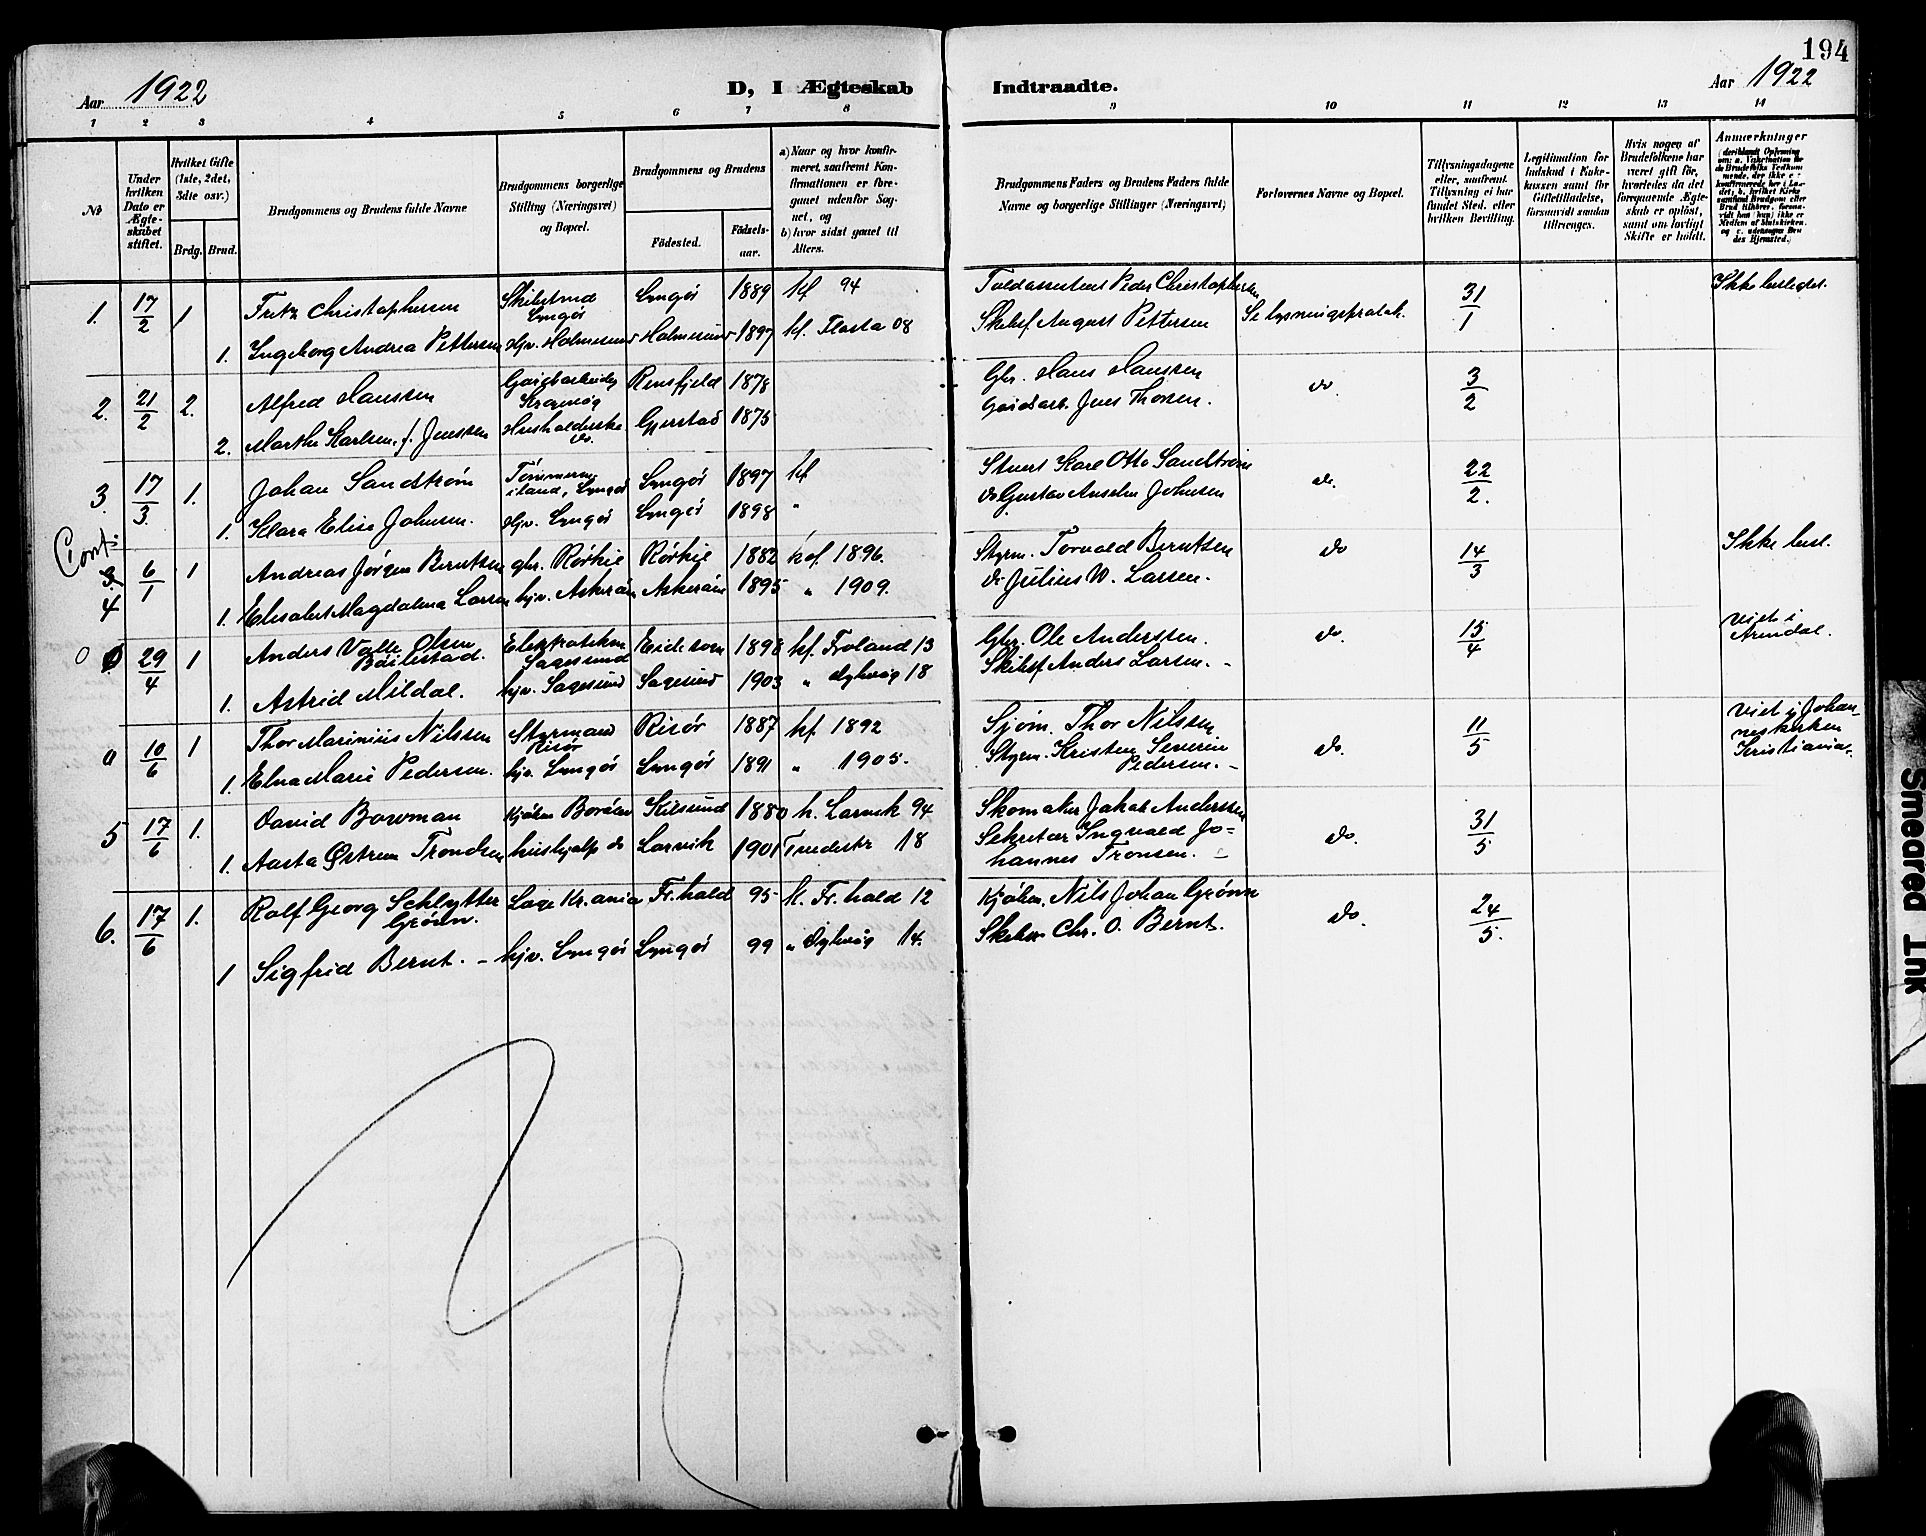 194
Aar 1922
D, I Ægteskab
Indtraadte.
Aar 1922
1 2 3 4 5 6 7 8 9 10 11 12 13 14
No
Under hvilken Dato er Ægteskabet stiftet.
Hvilket Gifte (1ste, 2det, 3die osv.)
Brdg. Brud.
Brudgommens og Brudens fulde Navne
Brudgommens borgerlige Stilling (Næringsvei) og Bopæl.
Brudgommens og Brudens
Födested.
Födselsaar.
a) Naar og hvor konfirmeret, saafremt Konfirmationen er foregaaet udenfor Sognet, og
b) hvor sidst gaaet til Alters.
Brudgommens Faders og Brudens Faders fulde Navne og borgerlige Stillinger (Næringsvei)
Forlovernes Navne og Bopæl.
Tillysningsdagene eller, saafremt Tillysning ei har fundet Sted, efter hvilken Bevilling.
Legitimation for Indskud i Enkekassen samt for Giftetilladelse, forsaavidt saadan tiltrænges.
Hvis nogen af Brudefolkene har været gift för, hvorledes da det foregaaende Ægteskab er oplöst, samt om lovligt Skifte er holdt.
Anmærkninger
1. 17/2 1 Fritz Christophersen Skibstmd Lyngör Lyngör 1889 kf 94 Toldassistent Peder Christophersen Se lysningsprotok. 31/1 Ikke beslegtet.
1. Ingeborg Andrea Pettersen Hjv. Holmesund Holmesund 1897 kf. Flosta 08 Skibsf August Pettersen
2. 21/2 2. Alfred Hanssen Gaardarbeider 1878 Gbr. Hans Hanssen do. 3/2
2. Marthe Karlsen f. Jenssen Husholderske do. Gjerstad 1875 Gaardsarb. Jens
3. 17/3 1. Johan Sandström Tömmerm. Lyngör Lyngör 1897 kf Stuert Karl Otto Sandström do. 22/2.
1. Klara Elise Johnsen. Hjv. Lyngör Lyngör 1898 " do Gustav Anselm Johnsen
Cont:
3 4 6/1 1 Andreas Jørgen Berntsen gbr. Rörkil Rörkil 1882 kof. 1896. Styrm. Torvald Berntsen do 14/3 Ikke besl.
1. Elisabet Magdalena Larsen hjv. Askerön Askerön 1895 " 1909. do Julius W. Larsen.
0 29/4 1 Anders Valle Olsen Böilestad. Sagesund 1898 kf. Froland 13 Gbr. Ole Anderssen. do. 15/4 viet i Arendal.
1. Astrid Mildal. hjv. Sagesund Sagesund 1903 " Dybvåg 18 Skibsf Anders Larsen. -
0 10/6 1 Thor Marinius Nilssen Styrmand Risör Risör 1887 kf. 1892 Sjöm. Thor Nilssen do. 11/5 viet i Johanneskirken Kristiania.
1. Elna Marie Pedersen. hjv. Lyngör Lyngör 1891 " 1905. Styrm. Kristen Severin Pedersen. -
5 17/6 1. David Bowman Kjöbm Kilsund 1880 k. Larvik 94 Skomaker Jakob Anderssen do. 31/5
1. Aasta Østrem Trondsen hushjælp do Larvik 1901 Tvedestr 18 Sekretær Ingvald Johannes Tronsen. -
6. 17/6 1. Rolf Georg Schlytter Grönn. Læge Kr.ania Fr.hald 95 k. Fr.hald 12 Kjöbm. Nils Johan Grönn do. 24/5.
1 Sigfrid Bernt. - hjv. Lyngör Lyngör 99 " Dybvåg 14. Chr. O. Bernt.
Smeared Ink